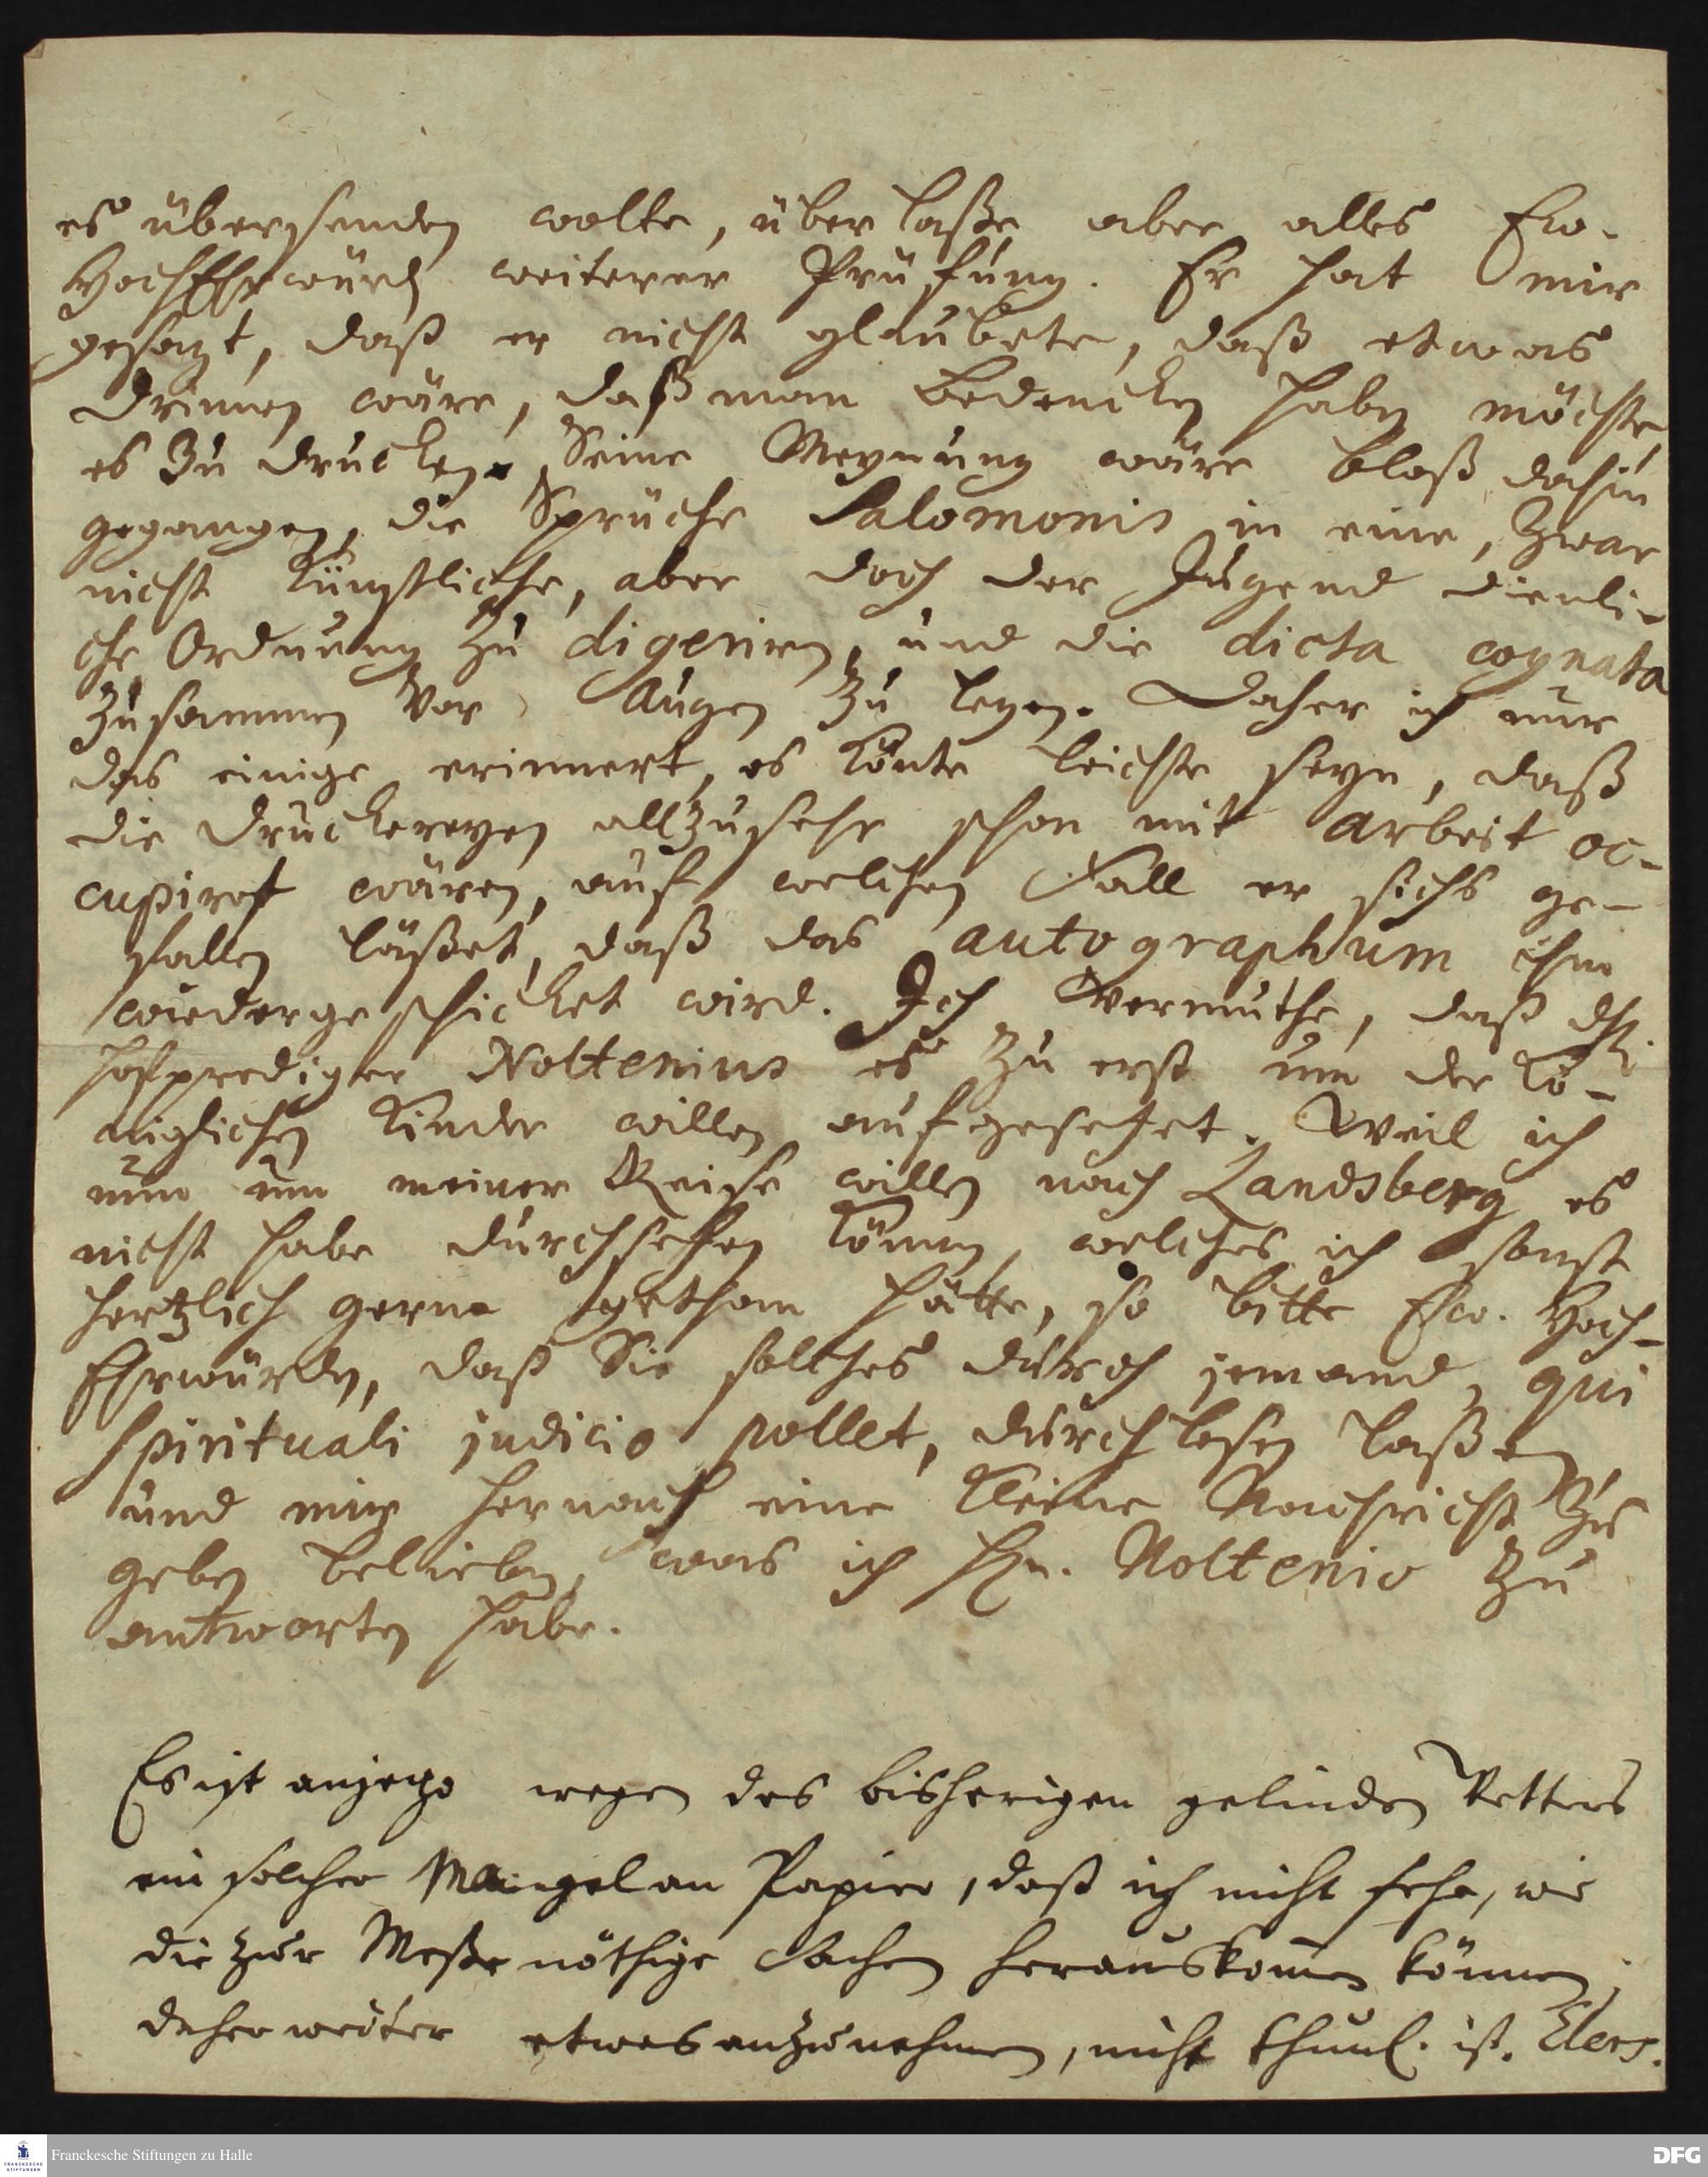 es übersenden wolte, überlaße aber alles Ew.
HochEhrwürd weiterer Prüfung. Er hat mir
gesagt, daß er nicht glaubete, daß etwas
drinnen wäre, daß man Bedencken haben möchte,
es zu drucken. Seine Meynung wäre bloß dahin
gegangen, die Sprüche Salomonis in eine, zwar
nicht künstliche, aber doch der Jugend dienli-
che Ordnung zu digeriren, und die dicta cognata
zusammen vor Augen zu legen. Daher ich nur
das einige erinnert, es könte leichte seyn, daß
die Druckereyen allzusehr schon mit Arbeit oc-
cupiret wären, auf welchen Fall er sichs ge-
fallen läßet, daß das autographum ihm
wiedergeschicket wird. Ich vermuthe, daß
Hofprediger Noltenius es zu erst um der Kö-
niglichen Kinder willen aufgesetzet. Weil ich
nun um meiner Reise willen nach Landsberg es
nicht habe durchsehen können, welches ich sonst
hertzlich gerne gethan hätte, so bitte Ew. Hoch-
Ehrwürden, daß Sie solches durch jemand, qui
spirituali judicio pollet, durchlesen laßen,
und mir hernach eine kleine Nachricht zu
geben belieben, was ich Hn. Noltenio zu
antworten habe.
Es ist anjetzo wegen des bisherigen gelinden Wetters
ein solcher Mangel an Papier, daß ich nicht sehe, wie
die zur Meße nöthige Sachen herauskomen können;
daher weiter etwas anzunehmen, nicht thunl. ist. Elers.
Franckesche Stiftungen zu Halle
FRANCKESCHE STIFTUNGEN
DFG